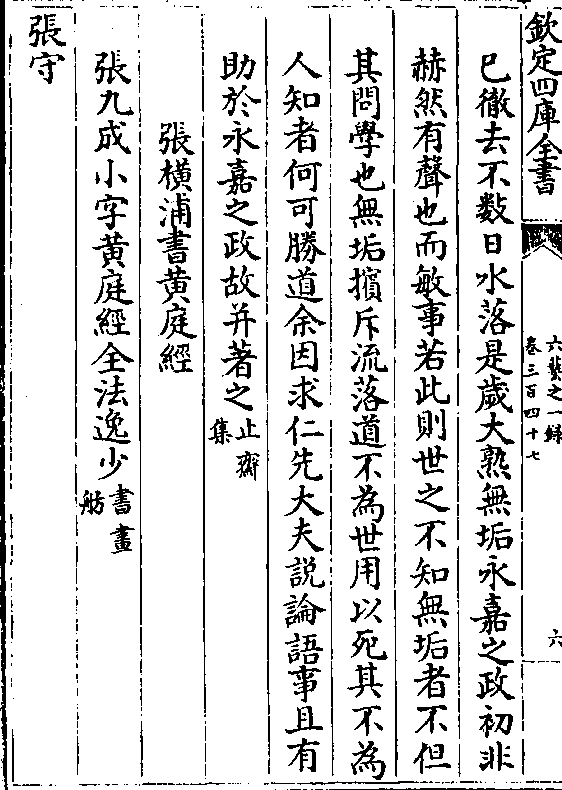 欽定四庫全書
六藝之一録
卷三百四十七
六
已徹去不數日水落是歲大熟無垢永嘉之政初非
赫然有聲也而敏事若此則世之不知無垢者不但
其問學也無垢擯斥流落道不為世用以死其不為
人知者何可勝道余因求仁先大夫說論語事且有
助於永嘉之政故并著之止齋集
張橫浦書黄庭經
張九成小字黄庭經全法逸少書畫舫
張守